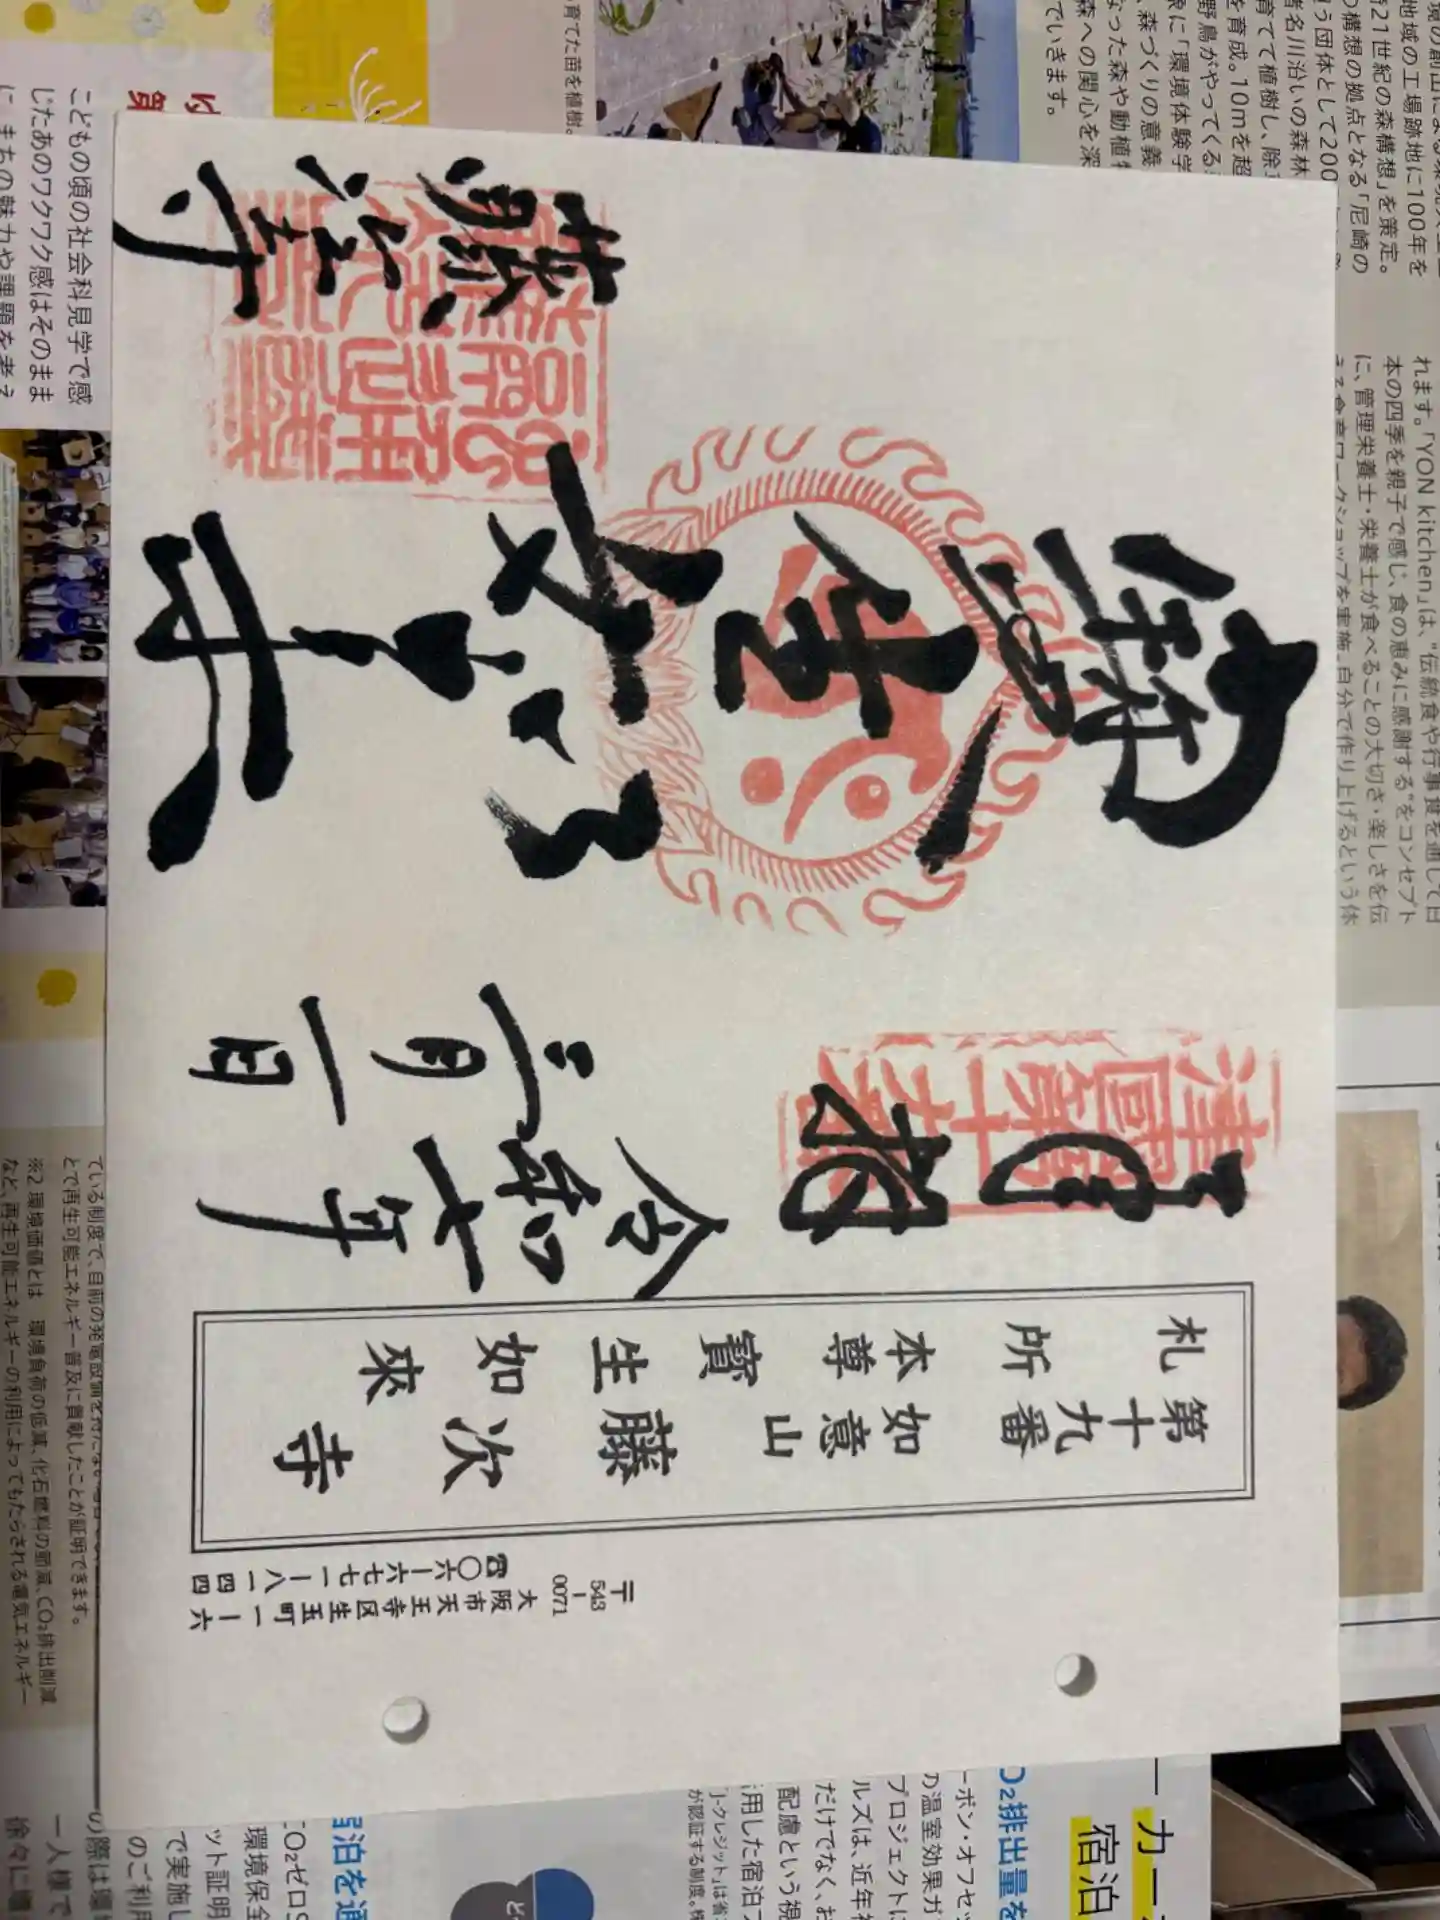 奉拝
令和七年
二月一日
寶生如来
藤次寺
札所
第十九番
本尊
如意山
寶生如來
藤次寺
〒543-0071
大阪市天王寺区生玉町一ー六
☎〇六ー六七七一ー八一四四
こどもの頃の社会科見学で感
じたあのワクワク感はそのまま
に、まちの魅力や課題を考え
の育てた苗を植樹。
地域の工場跡地に100年を
21世紀の森構想」を策定。
構想の拠点となる「尼崎の
う団体として200
者名川沿いの森林
育てて植樹し、除
を育成。10mを超
野鳥がやってくる
象に「環境体験学
、森づくりの意義
なった森や動植物
森への関心を深
でいきます。
れます。「YON kitchen」は、“伝統食や行事食を通して日
本の四季を親子で感じ、食の恵みに感謝する”をコンセプト
に、管理栄養士・栄養士が食べることの大切さ・楽しさを伝
える食育ワークショップを実施。自分で作り上げるという体
とで再生可能エネルギー普及に貢献したことが証明できます。
※2 環境価値とは 環境負荷の低減、化石燃料の節減、CO₂排出削減
など、再生可能エネルギーの利用によってもたらされる電気エネルギー
カー
宿泊
O₂排出量を
ーボン・オフセッ
の温室効果ガ
プロジェクトに
ルズは、近年
だけでなく、お
配慮という視
活用した宿泊プ
「J-クレジット」は省
が認証する制度。
宿泊を通
CO₂ゼロS
環境保全
ット証明
で実施し
のご利用
の際は環
一人様で
徐々に増